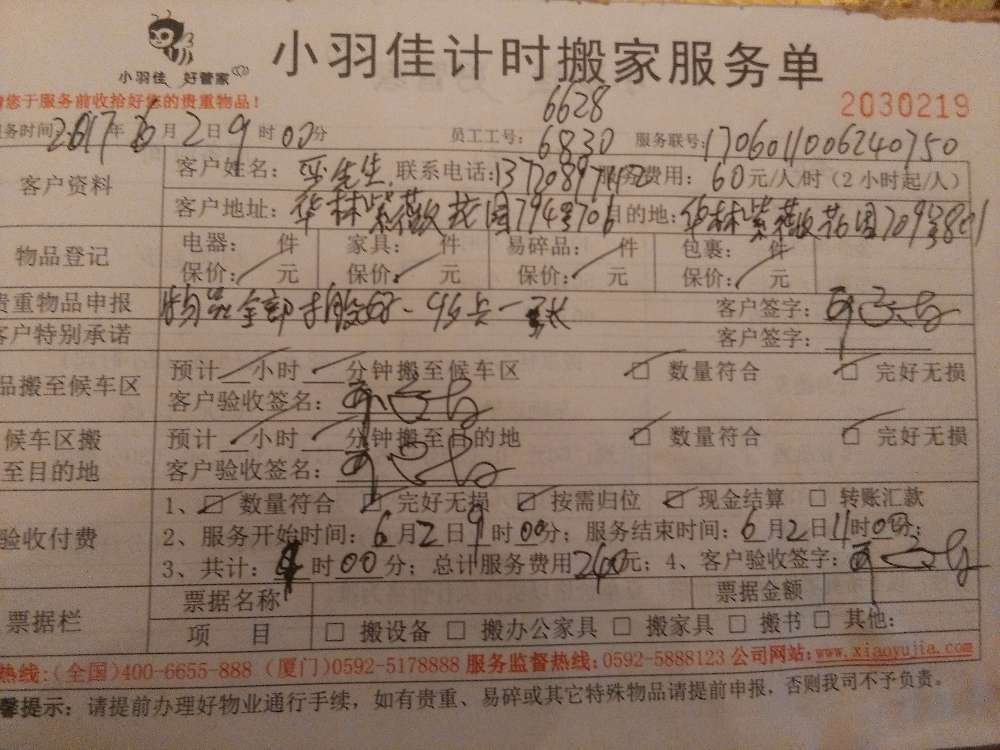 小羽佳 好管家
小羽佳计时搬家服务单
您于服务前收拾好您的贵重物品！
2030219
6628
务时间：2017年6月2日9时00分 员工工号：6830 服务联号：1706011006240750
客户资料
客户姓名： 先生 联系电话：1372089 服务费用：60元/人/时（2小时起/人）
客户地址：华林紫薇花园794号706 目的地：华林紫薇花园709号801
物品登记
电器： 件 家具： 件 易碎品： 件 包裹： 件
保价： 元 保价： 元 保价： 元 保价： 元
贵重物品申报 物品全部 客户签字：
客户特别承诺 客户签字：
品搬至候车区
预计 小时 分钟搬至候车区 数量符合 完好无损
客户验收签名：
候车区搬
至目的地
预计 小时 分钟搬至目的地 数量符合 完好无损
客户验收签名：
验收付费
1、 数量符合 完好无损 按需归位 现金结算 转账汇款
2、服务开始时间：6月2日9时00分；服务结束时间：6月2日11时00分；
3、共计： 时00分；总计服务费用240元；4、客户验收签字：
票据栏
票据名称 票据金额
项 目 搬设备 搬办公家具 搬家具 搬书 其他：
热线：（全国）400-6655-888（厦门）0592-5178888 服务监督热线：0592-5888123 公司网站：www.xiaoyujia.com
馨提示：请提前办理好物业通行手续，如有贵重、易碎或其它特殊物品请提前申报，否则我司不予负责。